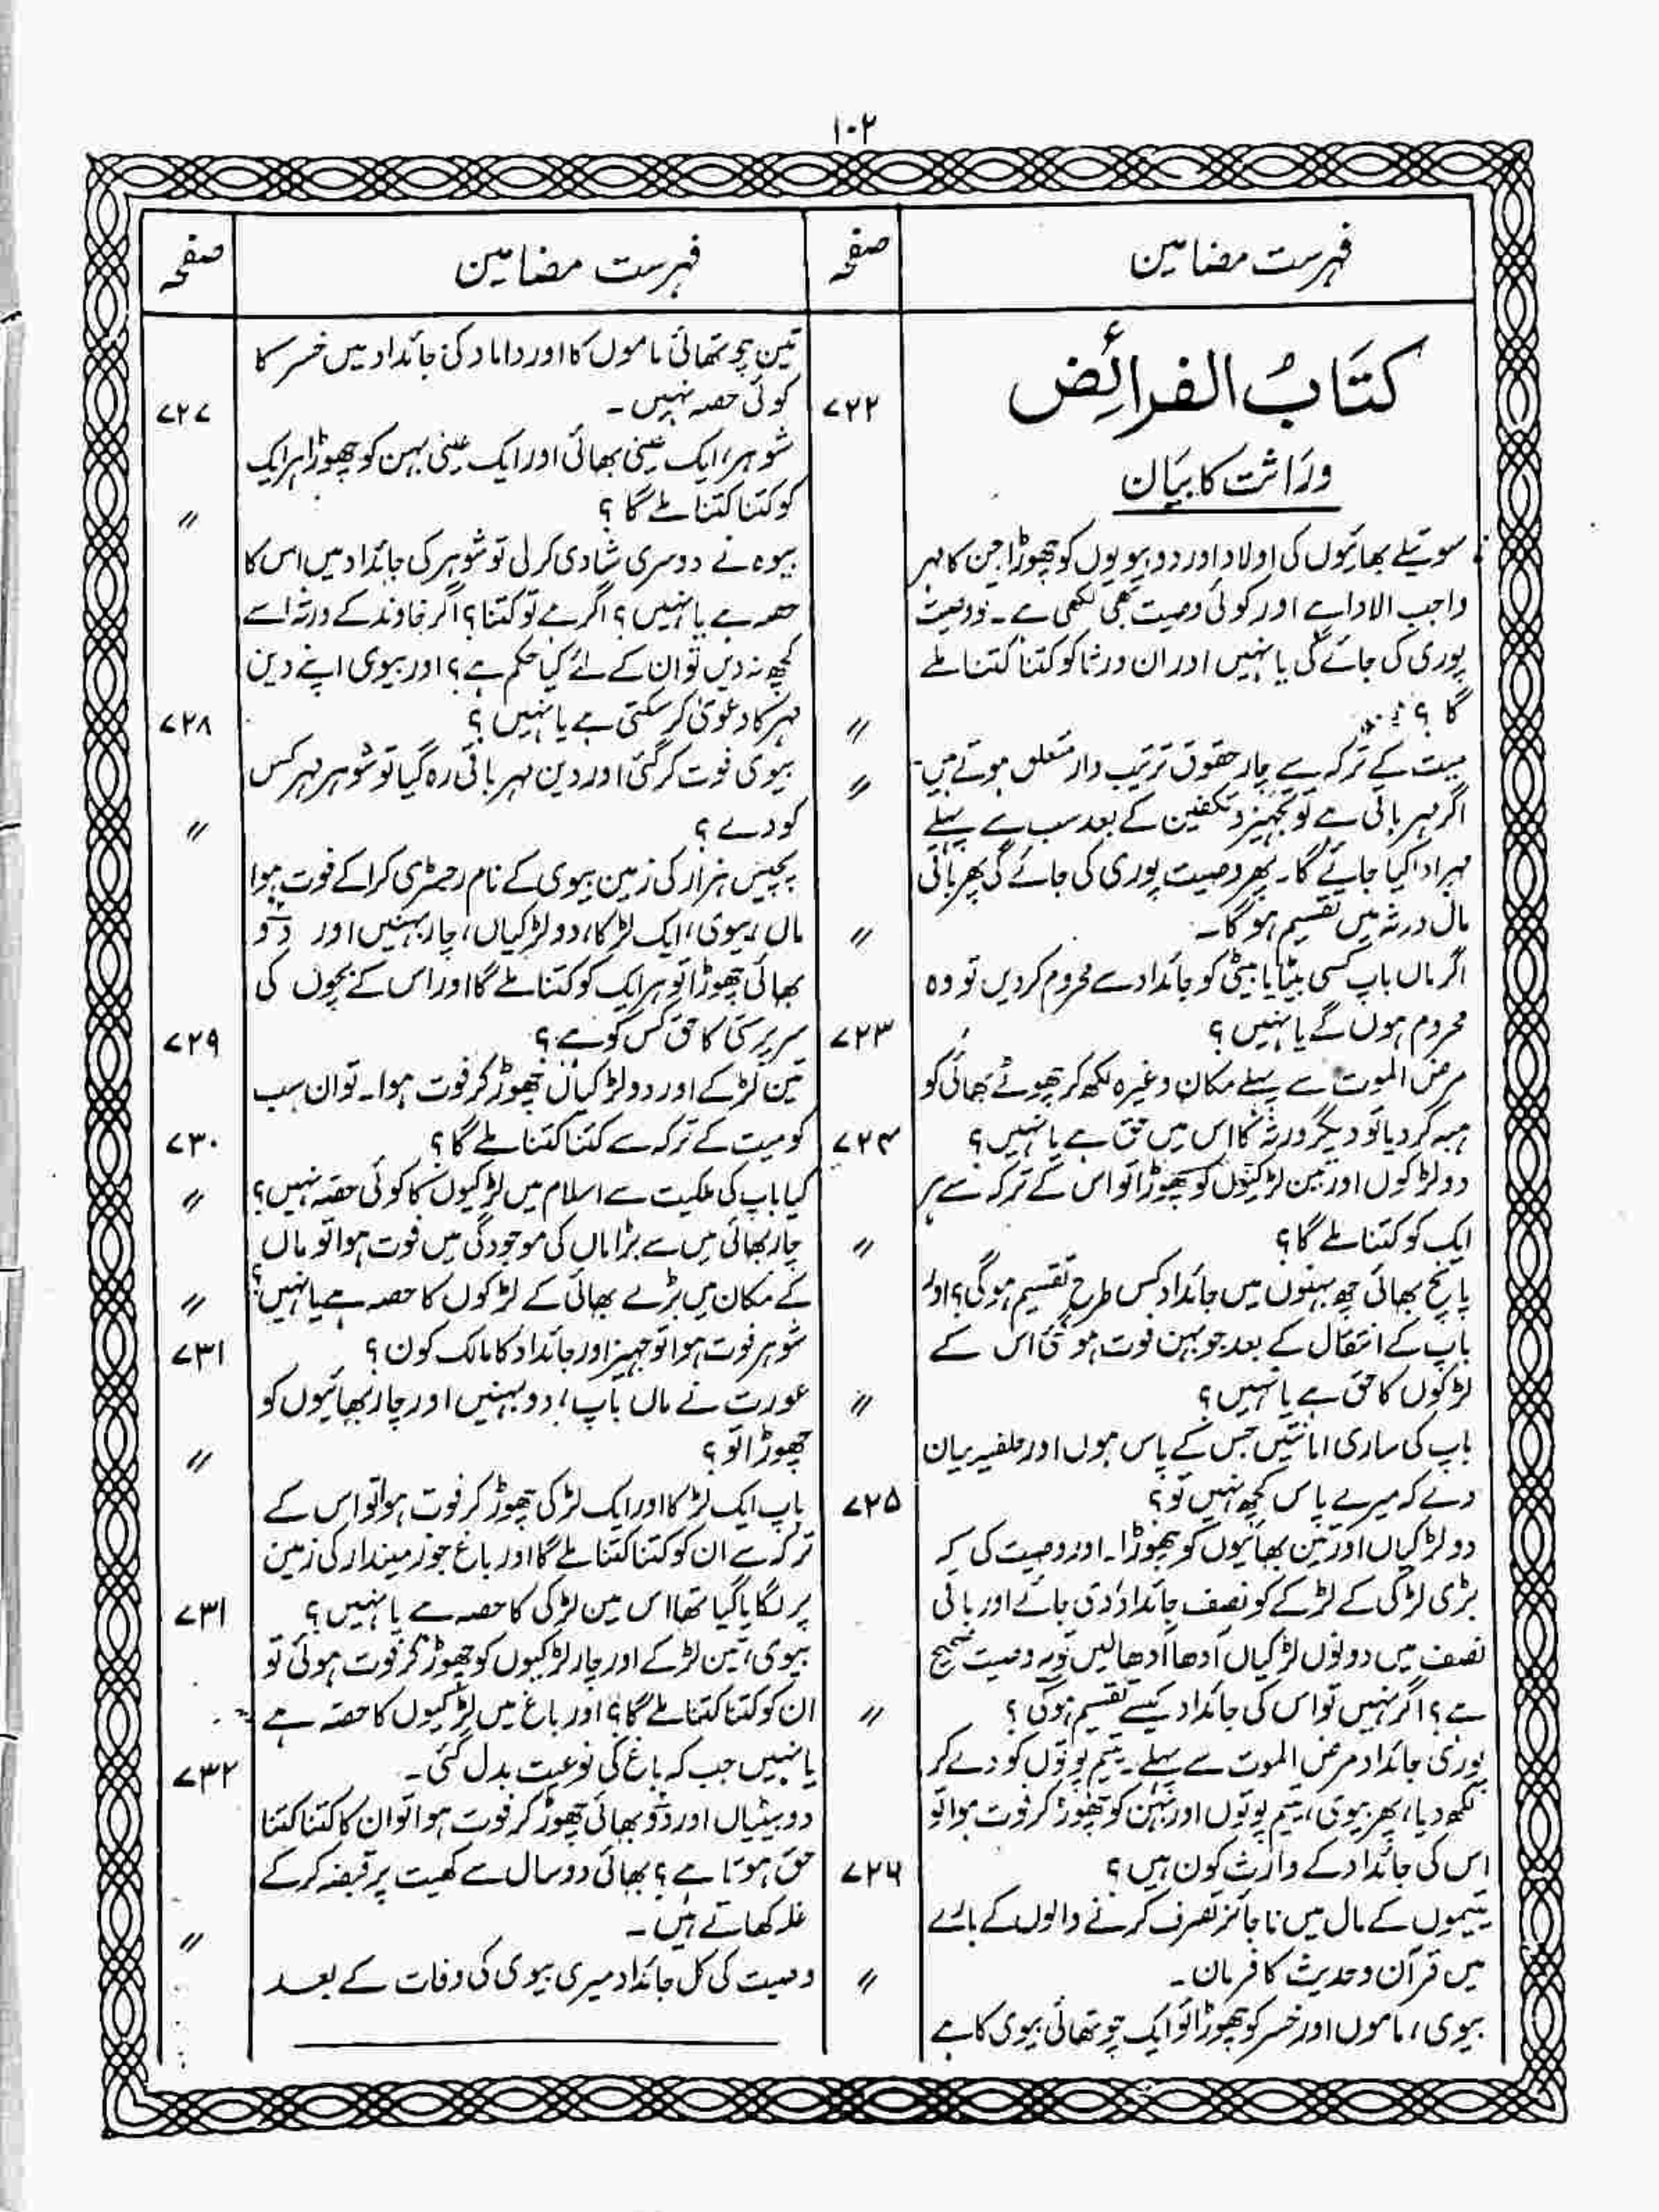 ۱۰۲
فہرست مضامین
صفحہ
کتَابُ الفرائض
۷۲۲
ورَاثت کا بیَان
سوتیلے بھائیوں کی اولاد اور دو بیویوں کو چھوڑا جن کا مہر
واجب الادا ہے اور کوئی وصیت بھی لکھی ہے۔ تو وصیت
پوری کی جائے گی یا نہیں اور ان ورثا کو کتنا کتنا ملے
گا ؟
〃
میت کے ترکہ سے چار حقوق ترتیب وار متعلق ہوتے ہیں۔
〃
اگر مہر باقی ہے تو تجہیز و تکفین کے بعد سب سے پہلے
مہر ادا کیا جائے گا۔ پھر وصیت پوری کی جائے گی پھر باقی
مال ورثہ میں تقسیم ہوگا۔
〃
اگر ماں باپ کسی بیٹا یا بیٹی کو جائداد سے محروم کر دیں تو وہ
محروم ہوں گے یا نہیں ؟
۷۲۳
مرض الموت سے پہلے مکان وغیرہ لکھ کر چھوٹے بھائی کو
ہبہ کر دیا تو دیگر ورثہ کا اس میں حق ہے یا نہیں ؟
۷۲۴
دو لڑکوں اور تین لڑکیوں کو چھوڑا تو اس کے ترکہ سے ہر
ایک کو کتنا ملے گا ؟
〃
پانچ بھائی چھ بہنوں میں جائداد کس طرح تقسیم ہوگی ؟ اور
باپ کے انتقال کے بعد جو بہن فوت ہوگئی اس کے
لڑکوں کا حق ہے یا نہیں ؟
〃
باپ کی ساری امانتیں جس کے پاس ہوں اور حلفیہ بیان
دے کہ میرے پاس کچھ نہیں تو ؟
۷۲۵
دو لڑکیاں اور تین بھائیوں کو چھوڑا۔ اور وصیت کی کہ
بڑی لڑکی کے لڑکے کو نصف جائداد دی جائے اور باقی
نصف میں دونوں لڑکیاں آدھا آدھا لیں تو یہ وصیت صحیح
ہے ؟ اگر نہیں تو اس کی جائداد کیسے تقسیم ہوگی ؟
〃
پوری جائداد مرض الموت سے پہلے یتیم پوتوں کو دے کر
لکھ دیا، پھر بیوی، یتیم پوتوں اور بہن کو چھوڑ کر فوت ہوا تو
اس کی جائداد کے وارث کون ہیں ؟
۷۲۶
یتیموں کے مال میں ناجائز تصرف کرنے والوں کے بارے
میں قرآن و حدیث کا فرمان۔
〃
بیوی، ماموں اور خسر کو چھوڑا تو ایک چوتھائی بیوی کا ہے
فہرست مضامین
صفحہ
تین چوتھائی ماموں کا اور داماد کی جائداد میں خسر کا
کوئی حصہ نہیں۔
۷۲۷
شوہر، ایک عینی بھائی اور ایک عینی بہن کو چھوڑا ہر ایک
کو کتنا کتنا ملے گا ؟
〃
بیوہ نے دوسری شادی کر لی تو شوہر کی جائداد میں اس کا
حصہ ہے یا نہیں ؟ اگر ہے تو کتنا ؟ اگر خاوند کے ورثہ اسے
کچھ نہ دیں تو ان کے لئے کیا حکم ہے ؟ اور بیوی اپنے دین
مہر کا دعویٰ کر سکتی ہے یا نہیں ؟
۷۲۸
بیوی فوت کر گئی اور دین مہر باقی رہ گیا تو شوہر مہر کس
کو دے ؟
〃
پچیس ہزار کی زمین بیوی کے نام رجسٹری کرا کے فوت ہوا
ماں، بیوی، ایک لڑکا، دو لڑکیاں، چار بہنیں اور دو
بھائی چھوڑا تو ہر ایک کو کتنا ملے گا اور اس کے بچوں کی
سرپرستی کا حق کس کو ہے ؟
۷۲۹
تین لڑکے اور دو لڑکیاں چھوڑ کر فوت ہوا۔ تو ان سب
کو میت کے ترکہ سے کتنا کتنا ملے گا ؟
۷۳۰
کیا باپ کی ملکیت سے اسلام میں لڑکیوں کا کوئی حصہ نہیں ؟
〃
چار بھائی میں سے بڑا ماں کی موجودگی میں فوت ہوا تو ماں
کے مکان میں بڑے بھائی کے لڑکوں کا حصہ ہے یا نہیں ؟
〃
شوہر فوت ہوا تو جہیز اور جائداد کا مالک کون ؟
۷۳۱
عورت نے ماں باپ، دو بہنیں اور چار بھائیوں کو
چھوڑا تو ؟
〃
باپ ایک لڑکا اور ایک لڑکی چھوڑ کر فوت ہوا تو اس کے
ترکہ سے ان کو کتنا کتنا ملے گا اور باغ جو زمیندار کی زمین
پر لگایا گیا تھا اس میں لڑکی کا حصہ ہے یا نہیں ؟
۷۳۱
بیوی، تین لڑکے اور چار لڑکیوں کو چھوڑ کر فوت ہوئی تو
ان کو کتنا کتنا ملے گا ؟ اور باغ میں لڑکیوں کا حصہ ہے
یا نہیں جب کہ باغ کی نوعیت بدل گئی۔
۷۳۲
دو بیٹیاں اور دو بھائی چھوڑ کر فوت ہوا تو ان کا کتنا کتنا
حق ہوتا ہے ؟ بھائی دو سال سے کھیت پر قبضہ کر کے
غلہ کھاتے ہیں۔
〃
وصیت کی کل جائداد میری بیوی کی وفات کے بعد